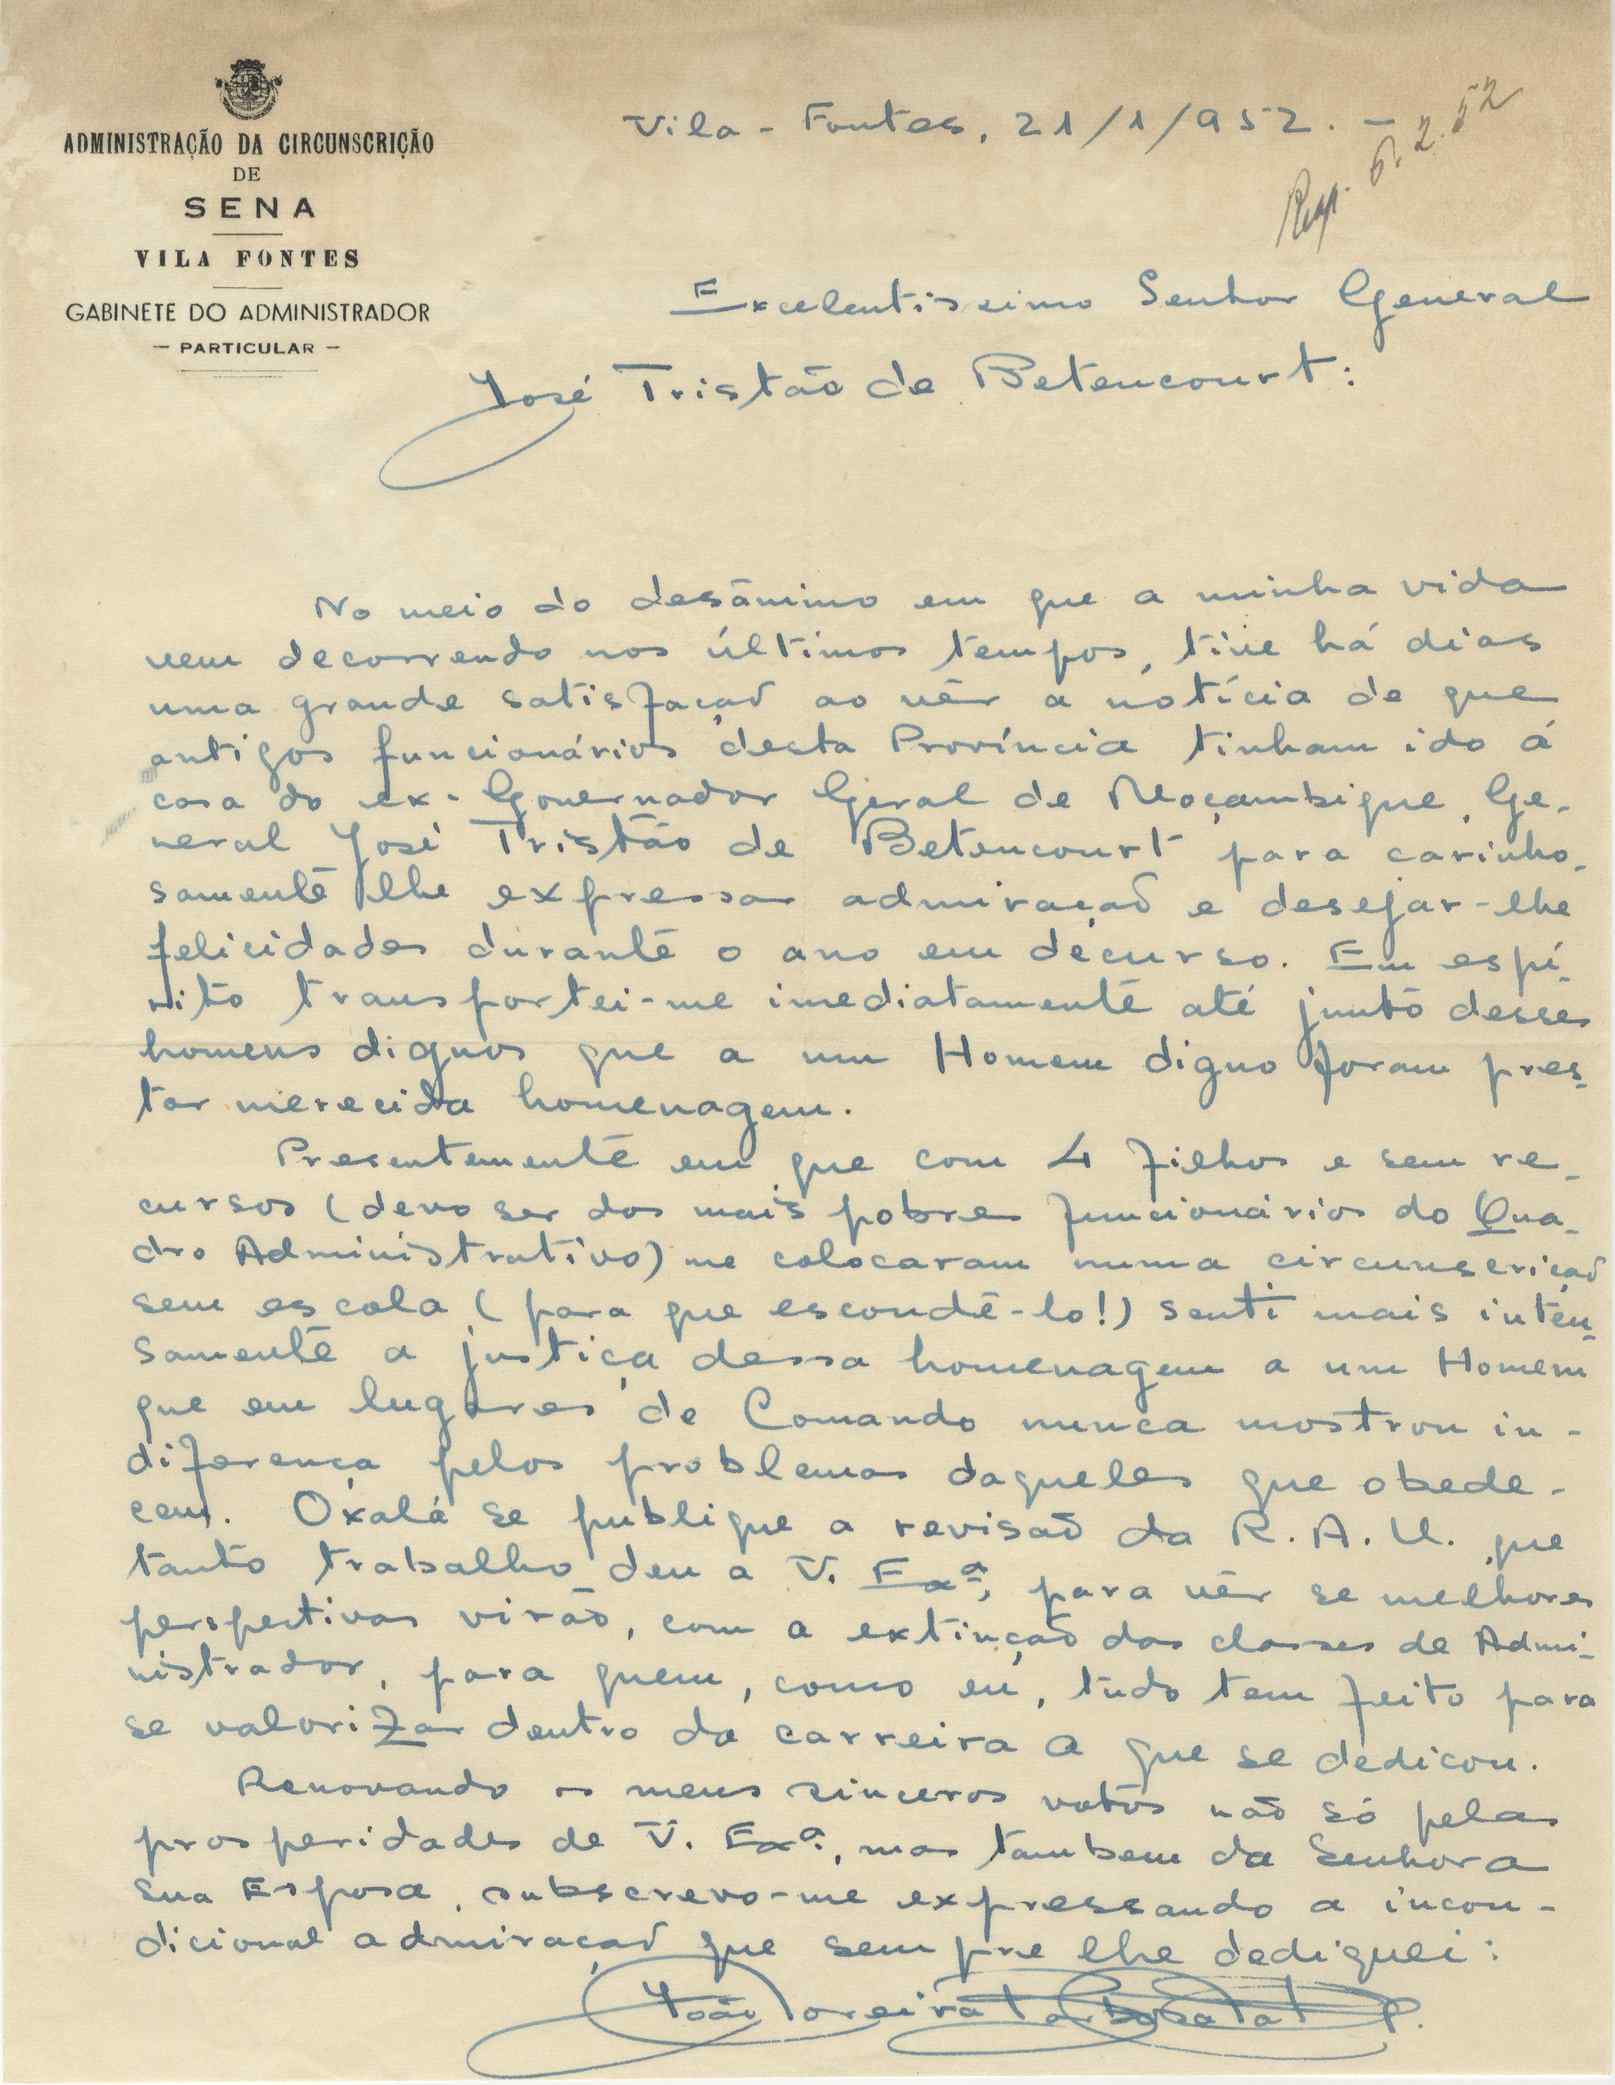 ADMINISTRAÇÃO DA CIRCUNSCRIÇÃO
DE
SENA
VILA FONTES
GABINETE DO ADMINISTRADOR
— PARTICULAR —
Vila - Fontes, 21/1/952. —
Resp. 6.2.52
Excelentissimo Senhor General
José Tristão de Betencourt:
No meio do desânimo em que a minha vida
vem decorrendo nos últimos tempos, tive há dias
uma grande satisfação ao vêr a notícia de que
antigos funcionários desta Província tinham ido á
casa do ex-Governador Geral de Moçambique, Ge-
neral José Tristão de Betencourt para carinho-
samente lhe expressar admiração e desejar-lhe
felicidades durante o ano em decurso. Em espí-
rito transportei-me imediatamente até junto desses
homens dignos que a um Homem digno foram pres-
tar merecida homenagem.
Presentemente em que com 4 filhos e sem re-
cursos (devo ser dos mais pobres funcionários do Qua-
dro Administrativo) me colocaram numa circunscrição
sem escola (para que escondê-lo!) senti mais inten-
samente a justiça dessa homenagem a um Homem
que em lugares de Comando nunca mostrou in-
diferença pelos problemas daqueles que obede-
cem. Oxalá se publique a revisão da R.A.U. que
tanto trabalho deu a V. Exª, para vêr se melhores
perspectivas virão, com a extinção das classes de Admi-
nistrador, para quem, como eu, tudo tem feito para
se valorizar dentro da carreira a que se dedicou.
Renovando os meus sinceros votos não só pelas
prosperidades de V. Exª., mas tambem da Senhora
sua Esposa, subscrevo-me expressando a incon-
dicional admiração que sempre lhe dediquei:
João